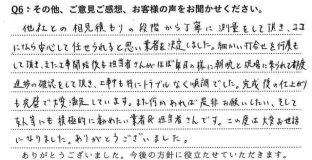 Q6：その他、ご意見ご感想、お客様の声をお聞かせください。
他社との相見積もりの段階から丁寧に測量をして頂き、ココ
になら安心して任せられると思い、業者を決定しました。細かい打合せを何度も
して頂き、また工事開始後も担当者さんがほぼ毎日の様に朝晩と現場に来られて都度
進歩の確認をして頂き、工事中も特にトラブルなく順調でした。完成後の仕上がり
も完璧で大変満足しています。また何かあれば是非お願いしたい、そして
友人等にも積極的に勧めたい業者&担当者さんです。この度は大変お世話
になりました。ありがとうございました。
ありがとうございました。今後の方針に役立たせていただきます。